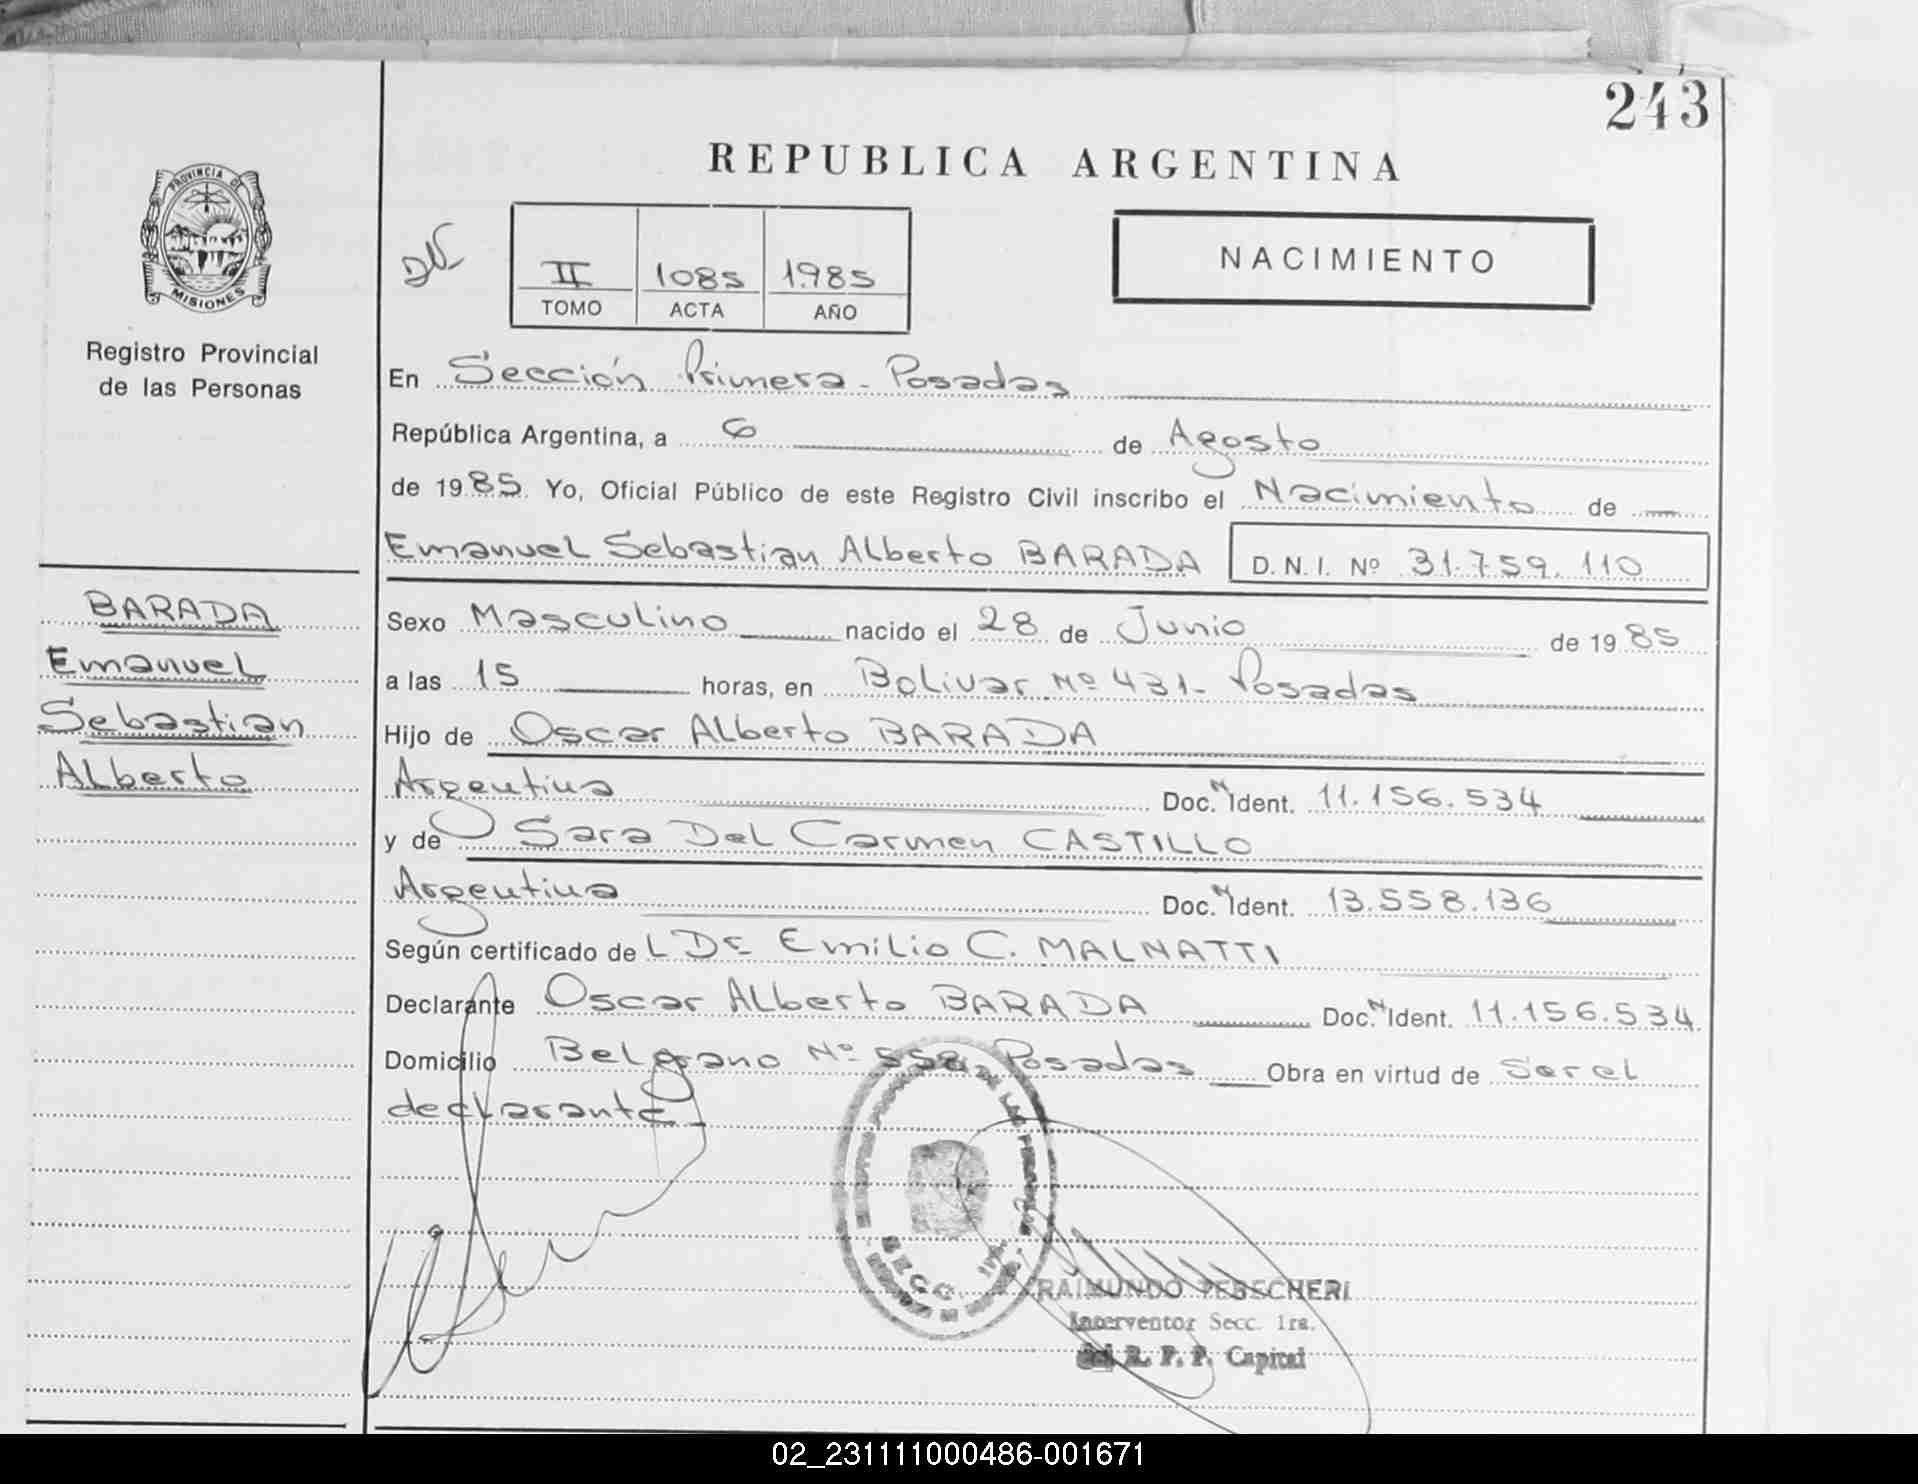 243
REPUBLICA ARGENTINA
PROVINCIA DE
MISIONES
Registro Provincial
de las Personas
II 1085 1.985
TOMO ACTA AÑO
NACIMIENTO
En Sección Primera - Posadas
República Argentina, a 6 de Agosto
de 1985. Yo, Oficial Público de este Registro Civil inscribo el Nacimiento de
Emanuel Sebastian Alberto BARADA D. N. I. Nº 31.759.110
BARADA
Emanuel
Sebastian
Alberto
Sexo Masculino nacido el 28 de Junio de 1985
a las 15 horas, en Bolivar Nº 431- Posadas
Hijo de Oscar Alberto BARADA
Argentina Doc. N Ident. 11.156.534
y de Sara Del Carmen CASTILLO
Argentina Doc. N Ident. 13.558.136
Según certificado de L Dr Emilio C. MALNATTI
Declarante Oscar Alberto BARADA Doc. N Ident. 11.156.534
Domicilio Belgrano Nº 558 Posadas Obra en virtud de Ser el
declarante
DE LAS PERSONAS
SECC. 1ra.
RAIMUNDO TEBSCHERI
Interventor Secc. 1ra.
del R. P. P. Capital
02_231111000486-001671